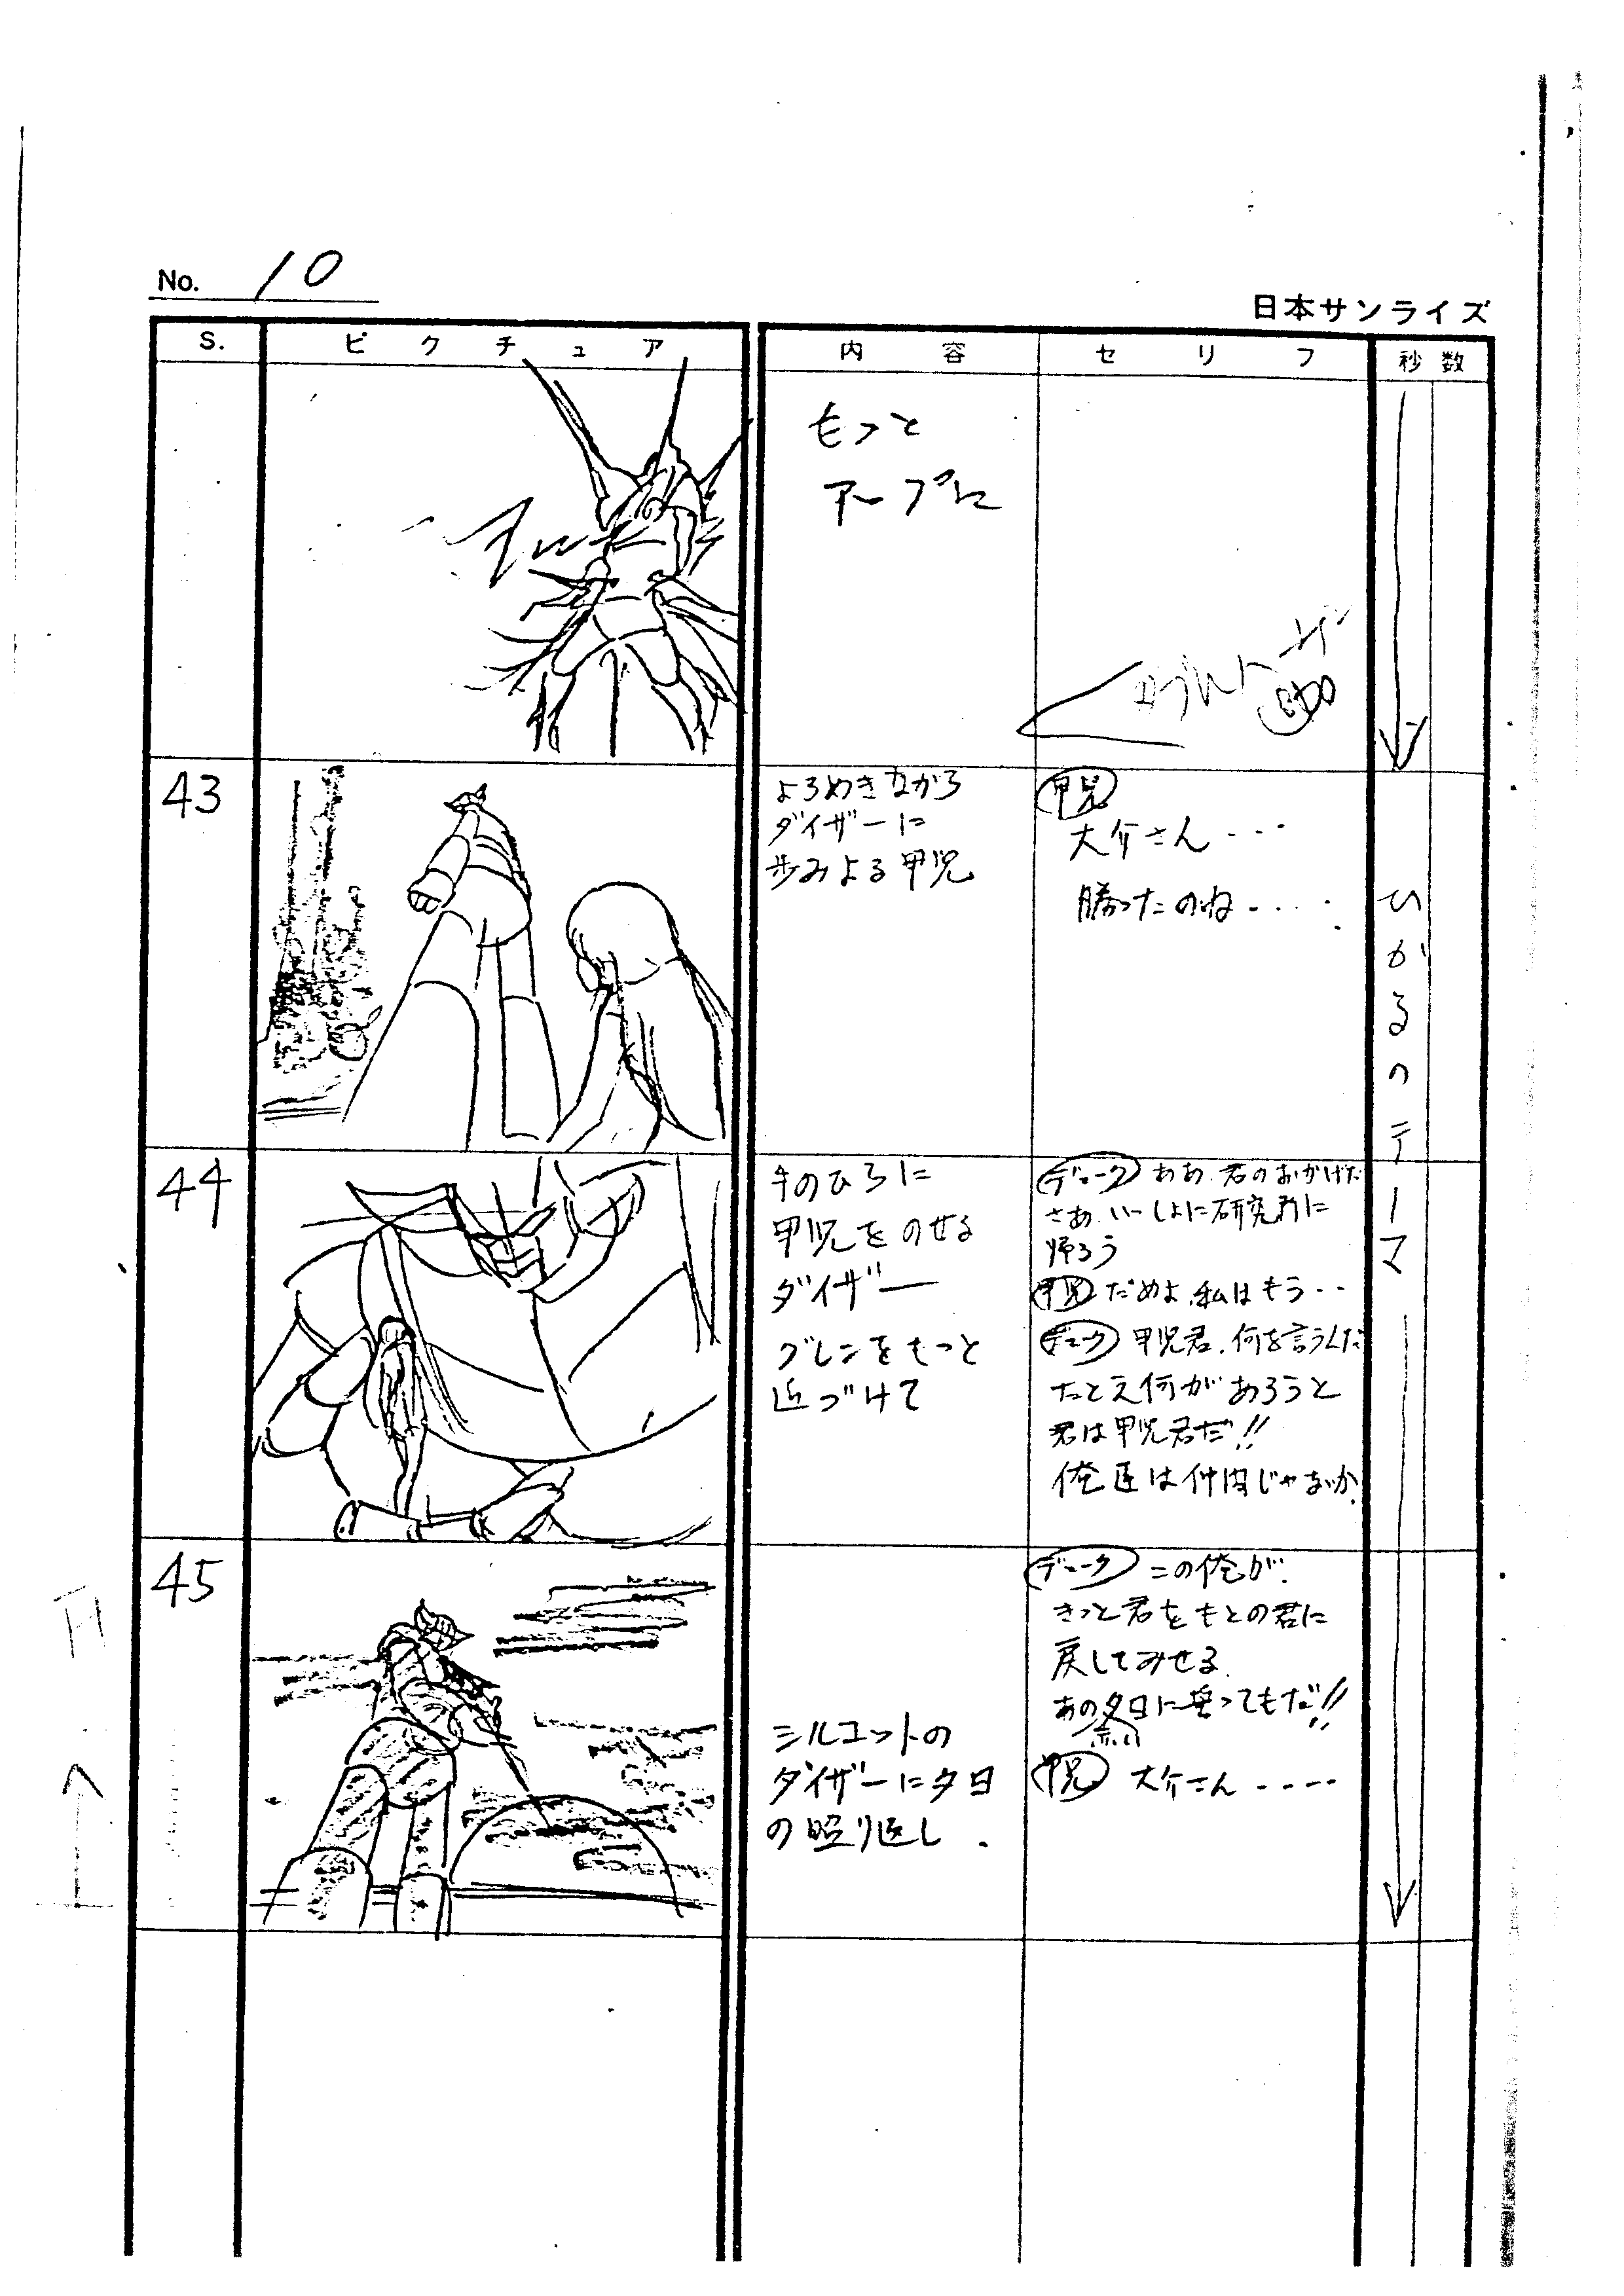 No. 10
日本サンライズ
S. ピクチュア 内容 セリフ 秒数
もっと
アープに
43
よろめきながら
ダイザーに
歩みよる甲児
甲児
大介さん・・・
勝ったのね・・・・
ひかるのテーマ
44
手のひらに
甲児をのせる
ダイザー
グレンをもっと
近づけて
デューク ああ、君のおかげだ
さあ、いっしょに研究所に
帰ろう
甲児 だめよ、私はもう・・
デューク 甲児君、何を言うんだ
たとえ何があろうと
君は甲児君だ!!
俺達は仲間じゃないか。
45
シルエットの
ダイザーに夕日
の照り返し.
デューク この俺が、
きっと君をもとの君に
戻してみせる.
あの夕日に誓ってもだ!!
赤い
甲児 大介さん・・・・